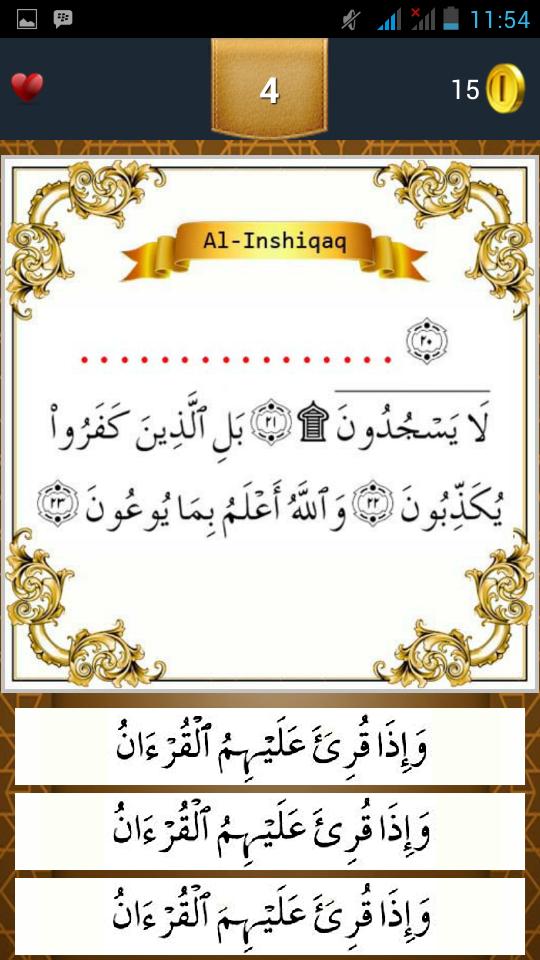 11:54
4
15
Al-Inshiqaq
٢٠ ................
لَا يَسْجُدُونَ ۩ ٢١ بَلِ ٱلَّذِينَ كَفَرُوا۟
يُكَذِّبُونَ ٢٢ وَٱللَّهُ أَعْلَمُ بِمَا يُوعُونَ ٢٣
وَإِذَا قُرِئَ عَلَيْهِمُ ٱلْقُرْءَانُ
وَإِذَا قُرِئَ عَلَيْهِمُ ٱلْقُرْءَانُ
وَإِذَا قُرِئَ عَلَيْهِمَ ٱلْقُرْءَانُ